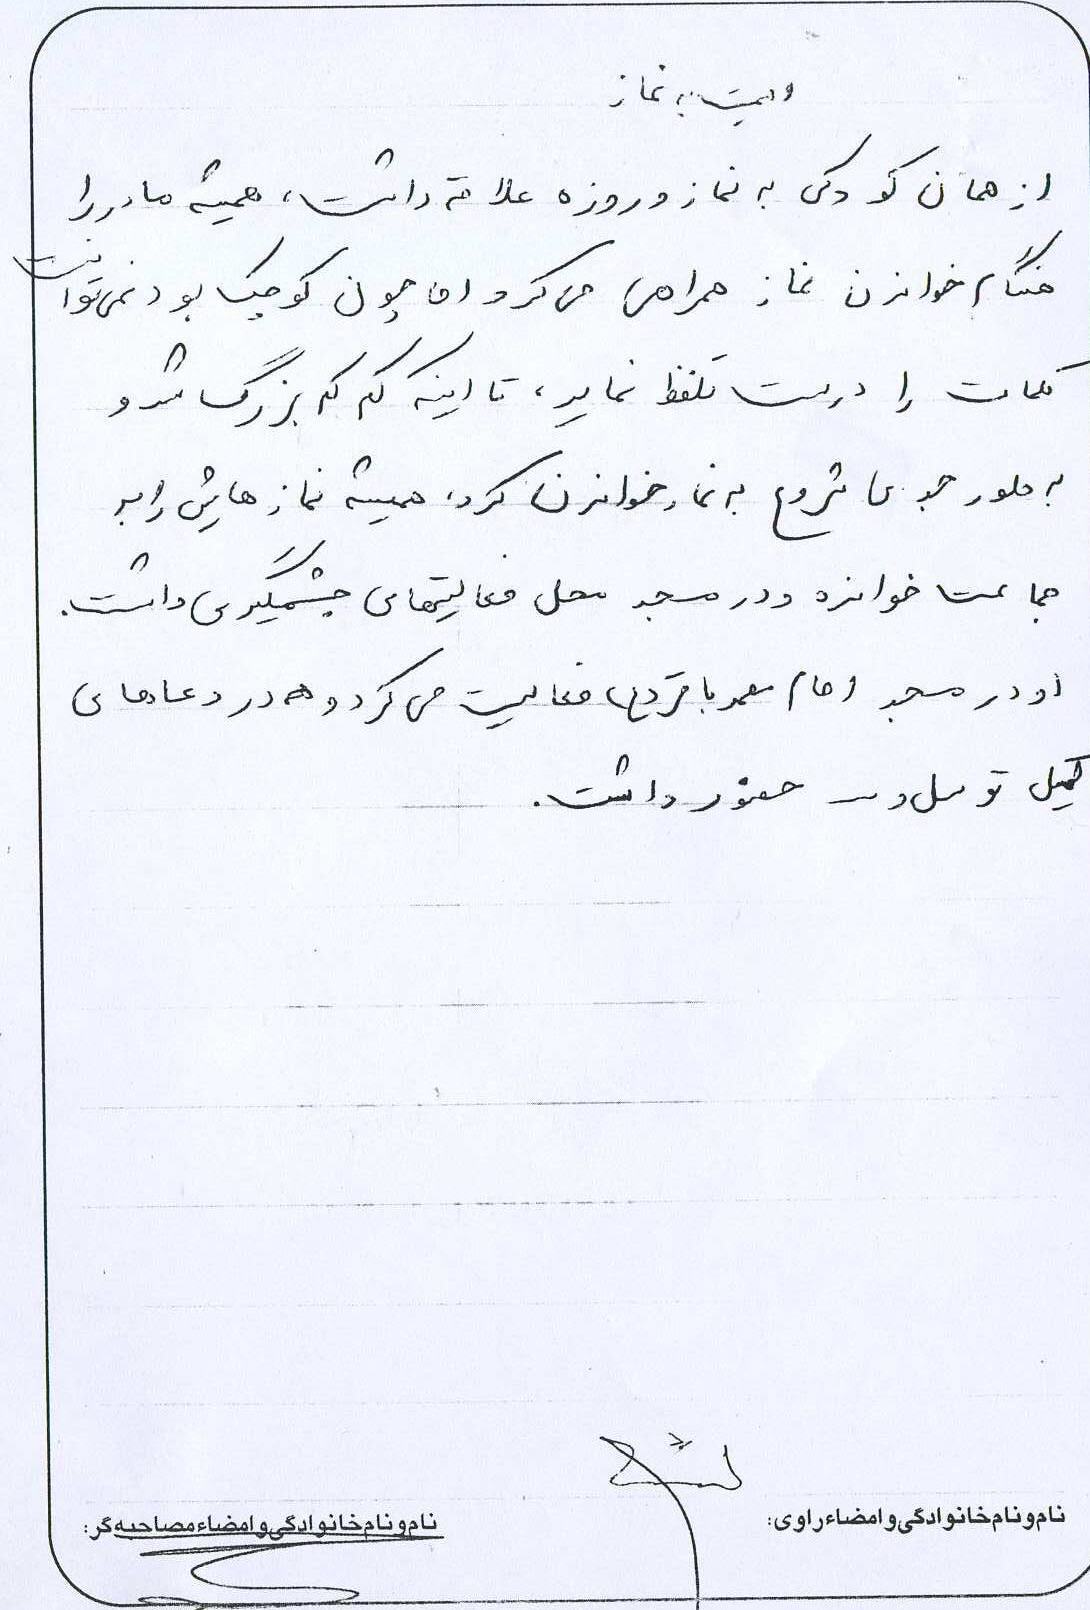 اهمیت به نماز
از همان کودکی به نماز و روزه علاقه داشت، همیشه مادر را
هنگام خواندن نماز همراهی می کرد اما چون کوچک بود نمی توانست
کلمات را درست تلفظ نماید، تا اینکه کم کم بزرگ شد و
به طور جدی شروع به نماز خواندن کرد، همیشه نمازهایش را به
جماعت خوانده و در مسجد محل فعالیتهای چشمگیری داشت.
او در مسجد امام محمد باقر (ع) فعالیت می کرد و در دعاهای
کمیل توسل و حضور داشت.
نام و نام خانوادگی و امضاء راوی:
نام و نام خانوادگی و امضاء مصاحبه گر: